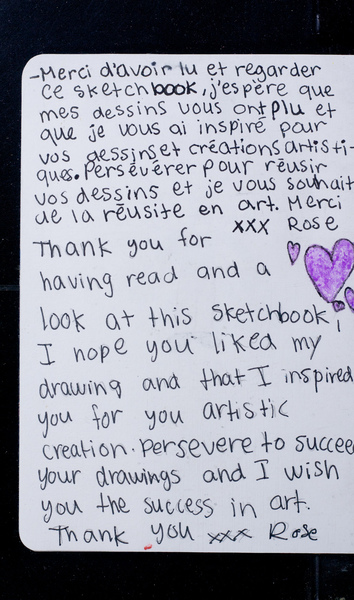 -Merci d'avoir lu et regarder
ce sketchbook, j'espère que
mes dessins vous ont plu et
que je vous ai inspiré pour
vos dessins et créations artisti-
ques. Persévérer pour réusir
vos dessins et je vous souhait
de la réusite en art. Merci
xxx Rose
Thank you for
having read and a
look at this sketchbook,
I hope you liked my
drawing and that I inspired
you for you artistic
creation. Persevere to succee
your drawings and I wish
you the success in art.
Thank you xxx Rose